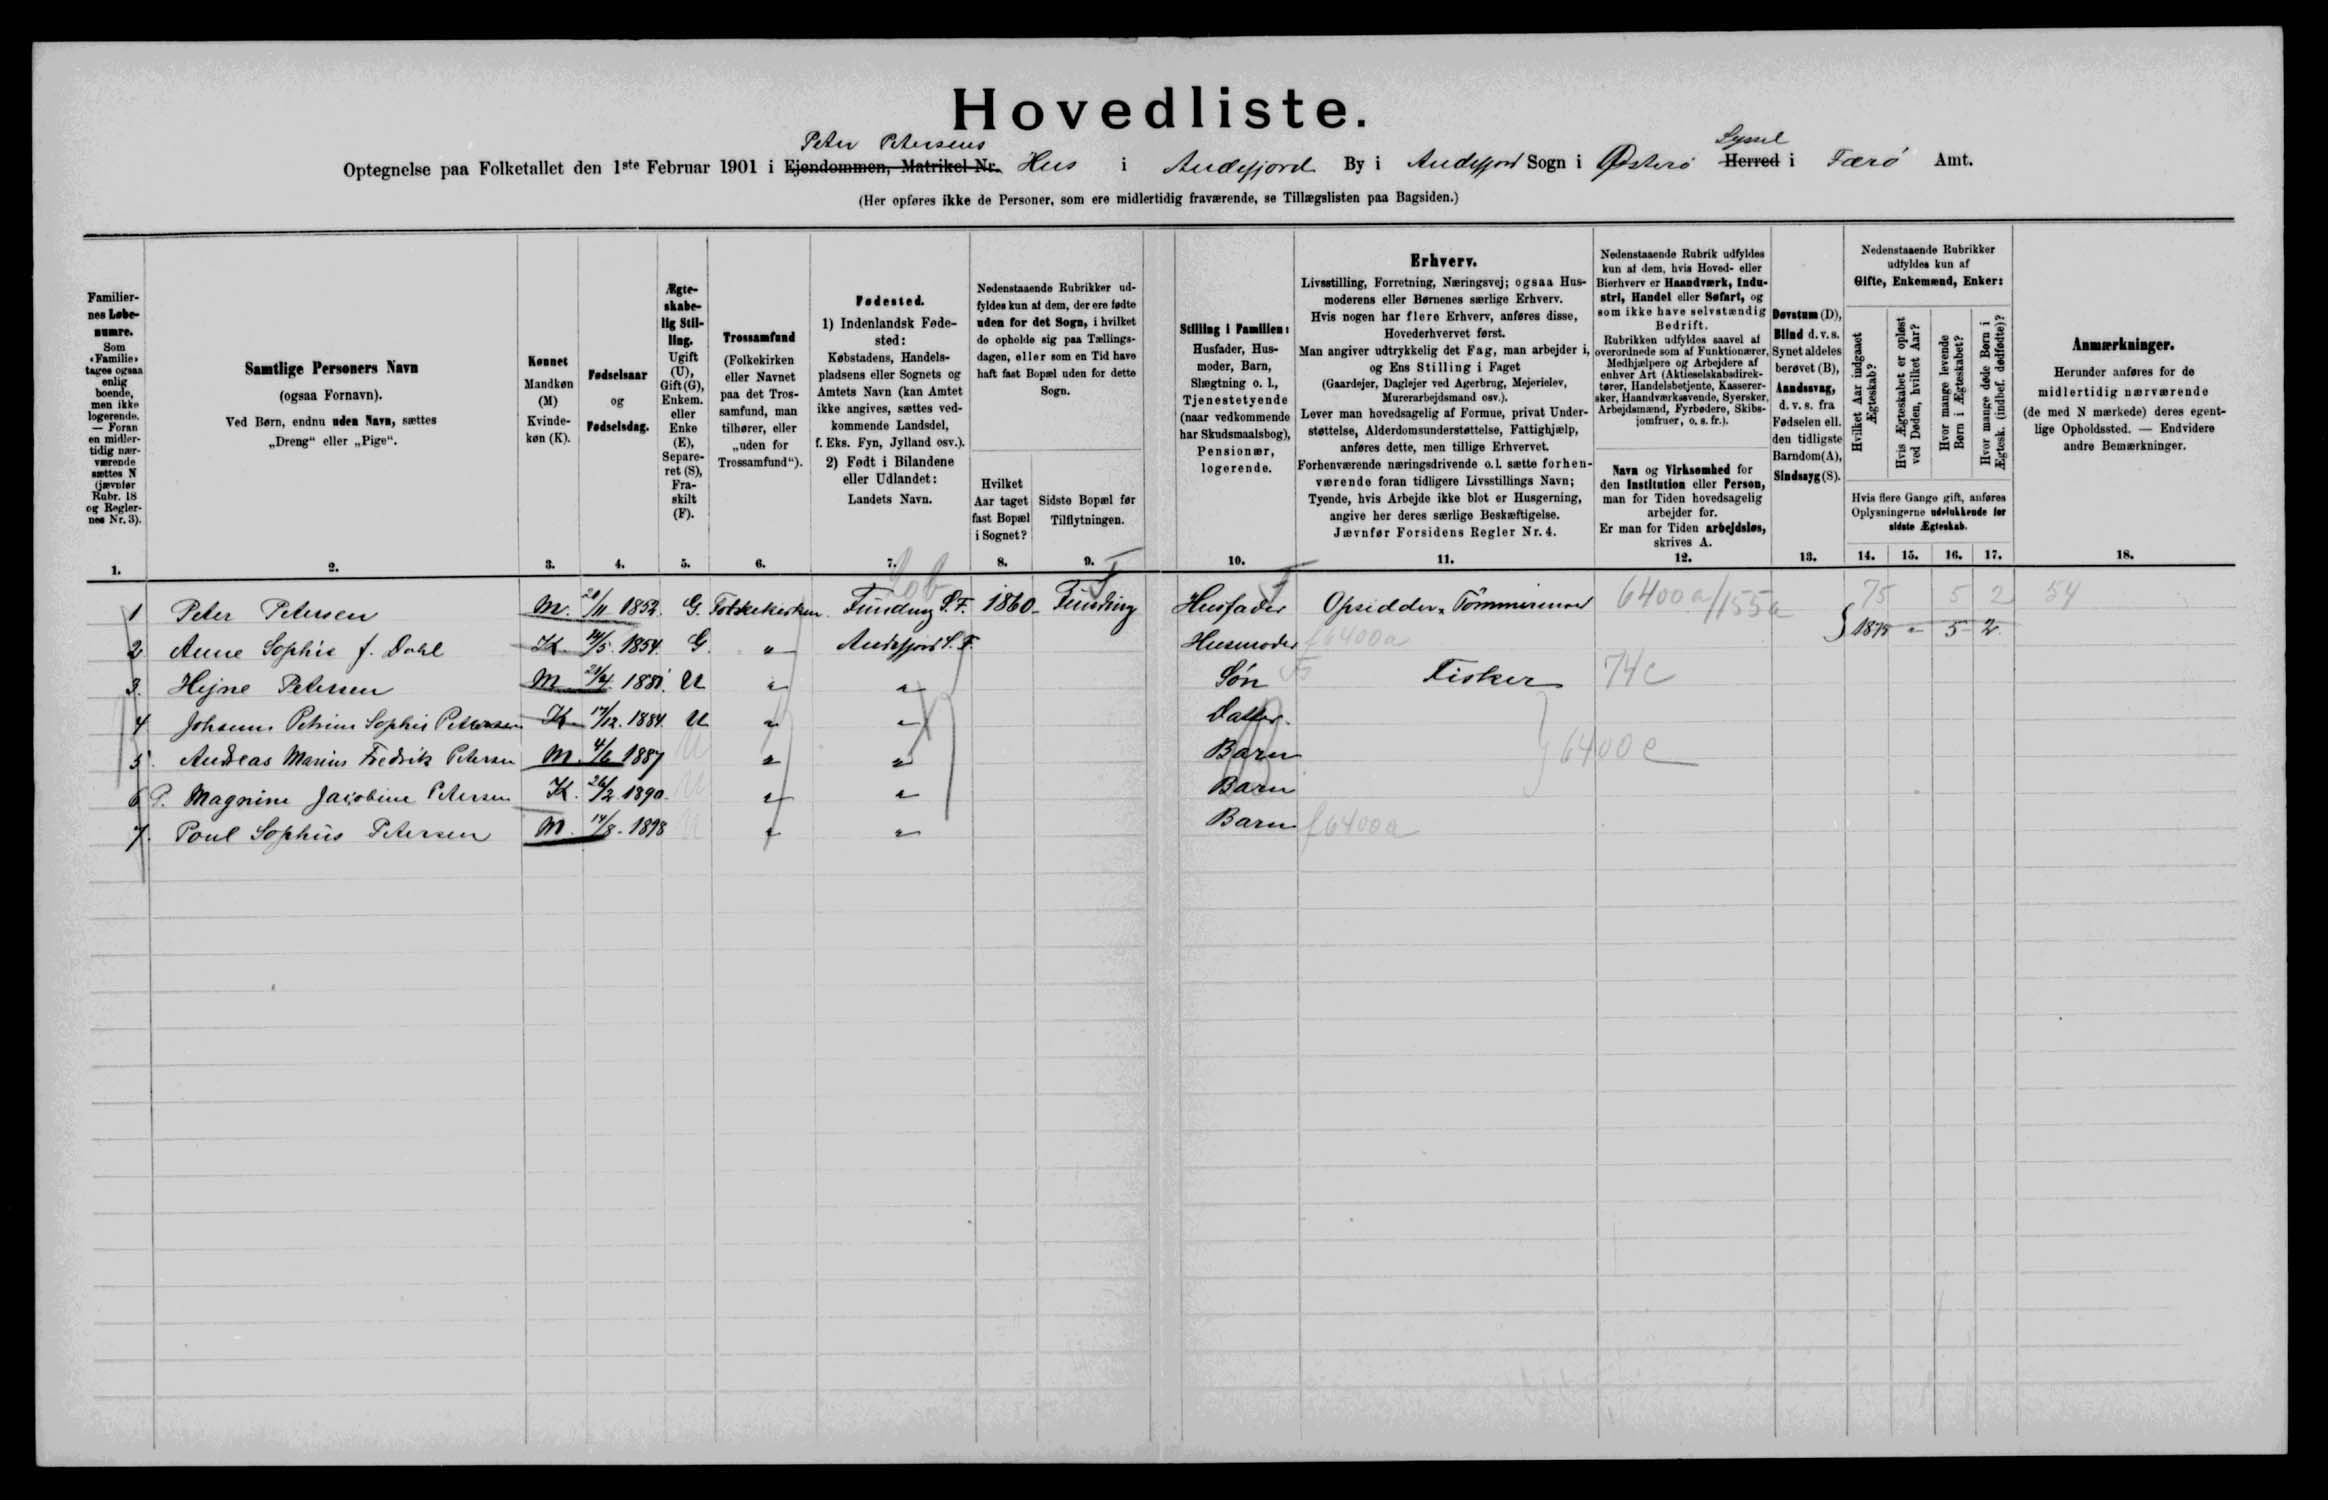 Hovedliste.
Peter Petersens
Syssel
Optegnelse paa Folketallet den 1ste Februar 1901 i Ejendommen, Matrikel Nr. Hus i Andefjord By i Andefjord Sogn i Østerø Herred i Færø Amt.
(Her opføres ikke de Personer, som ere midlertidig fraværende, se Tillægslisten paa Bagsiden.)
Familiernes Løbenumre. Som «Familie» tages ogsaa enlig boende, men ikke logerende. — Foran en midlertidig nærværende sættes N (jævnfør Rubr. 18 og Reglernes Nr. 3).
Samtlige Personers Navn
(ogsaa Fornavn).
Ved Børn, endnu uden Navn, sættes
„Dreng“ eller „Pige“.
Kønnet
Mandkøn (M)
Kvindekøn (K).
Fødselsaar
og
Fødselsdag.
Ægteskabelig Stilling. Ugift (U), Gift (G), Enkem. eller Enke (E), Separeret (S), Fraskilt (F).
Trossamfund
(Folkekirken eller Navnet paa det Trossamfund, man tilhører, eller „uden for Trossamfund“).
Fødested.
1) Indenlandsk Fødested:
Købstadens, Handelspladsens eller Sognets og Amtets Navn (kan Amtet ikke angives, sættes vedkommende Landsdel, f. Eks. Fyn, Jylland osv.).
2) Født i Bilandene eller Udlandet:
Landets Navn.
Nedenstaaende Rubrikker udfyldes kun af dem, der ere fødte uden for det Sogn, i hvilket de opholde sig paa Tællingsdagen, eller som en Tid have haft fast Bopæl uden for dette Sogn.
Hvilket Aar taget fast Bopæl i Sognet?
Sidste Bopæl før Tilflytningen.
Stilling i Familien:
Husfader, Husmoder, Barn, Slægtning o. l., Tjenestetyende (naar vedkommende har Skudsmaalsbog), Pensionær, logerende.
Erhverv.
Livsstilling, Forretning, Næringsvej; ogsaa Husmoderens eller Børnenes særlige Erhverv.
Hvis nogen har flere Erhverv, anføres disse, Hovederhvervet først.
Man angiver udtrykkelig det Fag, man arbejder i, og Ens Stilling i Faget
(Gaardejer, Daglejer ved Agerbrug, Mejerielev, Murerarbejdsmand osv.).
Lever man hovedsagelig af Formue, privat Understøttelse, Alderdomsunderstøttelse, Fattighjælp, anføres dette, men tillige Erhvervet.
Forhenværende næringsdrivende o. l. sætte forhenværende foran tidligere Livsstillings Navn;
Tyende, hvis Arbejde ikke blot er Husgerning, angive her deres særlige Beskæftigelse.
Jævnfør Forsidens Regler Nr. 4.
Nedenstaaende Rubrik udfyldes kun af dem, hvis Hoved- eller Bierhverv er Haandværk, Industri, Handel eller Søfart, og som ikke have selvstændig Bedrift.
Rubrikken udfyldes saavel af overordnede som af Funktionærer, Medhjælpere og Arbejdere af enhver Art (Aktieselskabsdirektører, Handelsbetjente, Kasserersker, Haandværkssvende, Syersker, Arbejdsmænd, Fyrbødere, Skibsjomfruer, o. s. fr.).
Navn og Virksomhed for den Institution eller Person, man for Tiden hovedsagelig arbejder for.
Er man for Tiden arbejdsløs, skrives A.
Døvstum (D), Blind d. v. s. Synet aldeles berøvet (B), Aandssvag, d. v. s. fra Fødselen ell. den tidligste Barndom (A), Sindssyg (S).
Nedenstaaende Rubrikker udfyldes kun af
Gifte, Enkemænd, Enker:
Hvilket Aar indgaaet Ægteskab?
Hvis Ægteskabet er opløst ved Døden, hvilket Aar?
Hvor mange levende Børn i Ægteskabet?
Hvor mange døde Børn i Ægtesk. (indbef. dødfødte)?
Hvis flere Gange gift, anføres Oplysningerne udelukkende for sidste Ægteskab.
Anmærkninger.
Herunder anføres for de midlertidig nærværende (de med N mærkede) deres egentlige Opholdssted. — Endvidere andre Bemærkninger.
1. 2. 3. 4. 5. 6. 7. 8. 9. 10. 11. 12. 13. 14. 15. 16. 17. 18.
1 Peter Petersen M. 20/11 1852. G. Folkekirken. Funding S. F. 1860. Funding Husfader Opsidder, Tømmermand 6400a/155a 75 5 2 54
2 Anne Sophie f. Dahl K. 14/5. 1854. G. " Andefjord S. F. Husmoder f6400a 1875 " 5 2
3. Hejne Petersen M 21/4. 1881. U " " Søn Fisker 74c
4 Johanne Petrine Sophie Petersen K. 17/12. 1884. U " " Datter.
5. Andreas Marius Fredrik Petersen M. 4/6 1887 U " " Barn 6400c
6 P. Magnine Jacobine Petersen K. 26/2. 1890. U " " Barn
7. Poul Sophus Petersen M. 14/8. 1898 U " " Barn f6400a